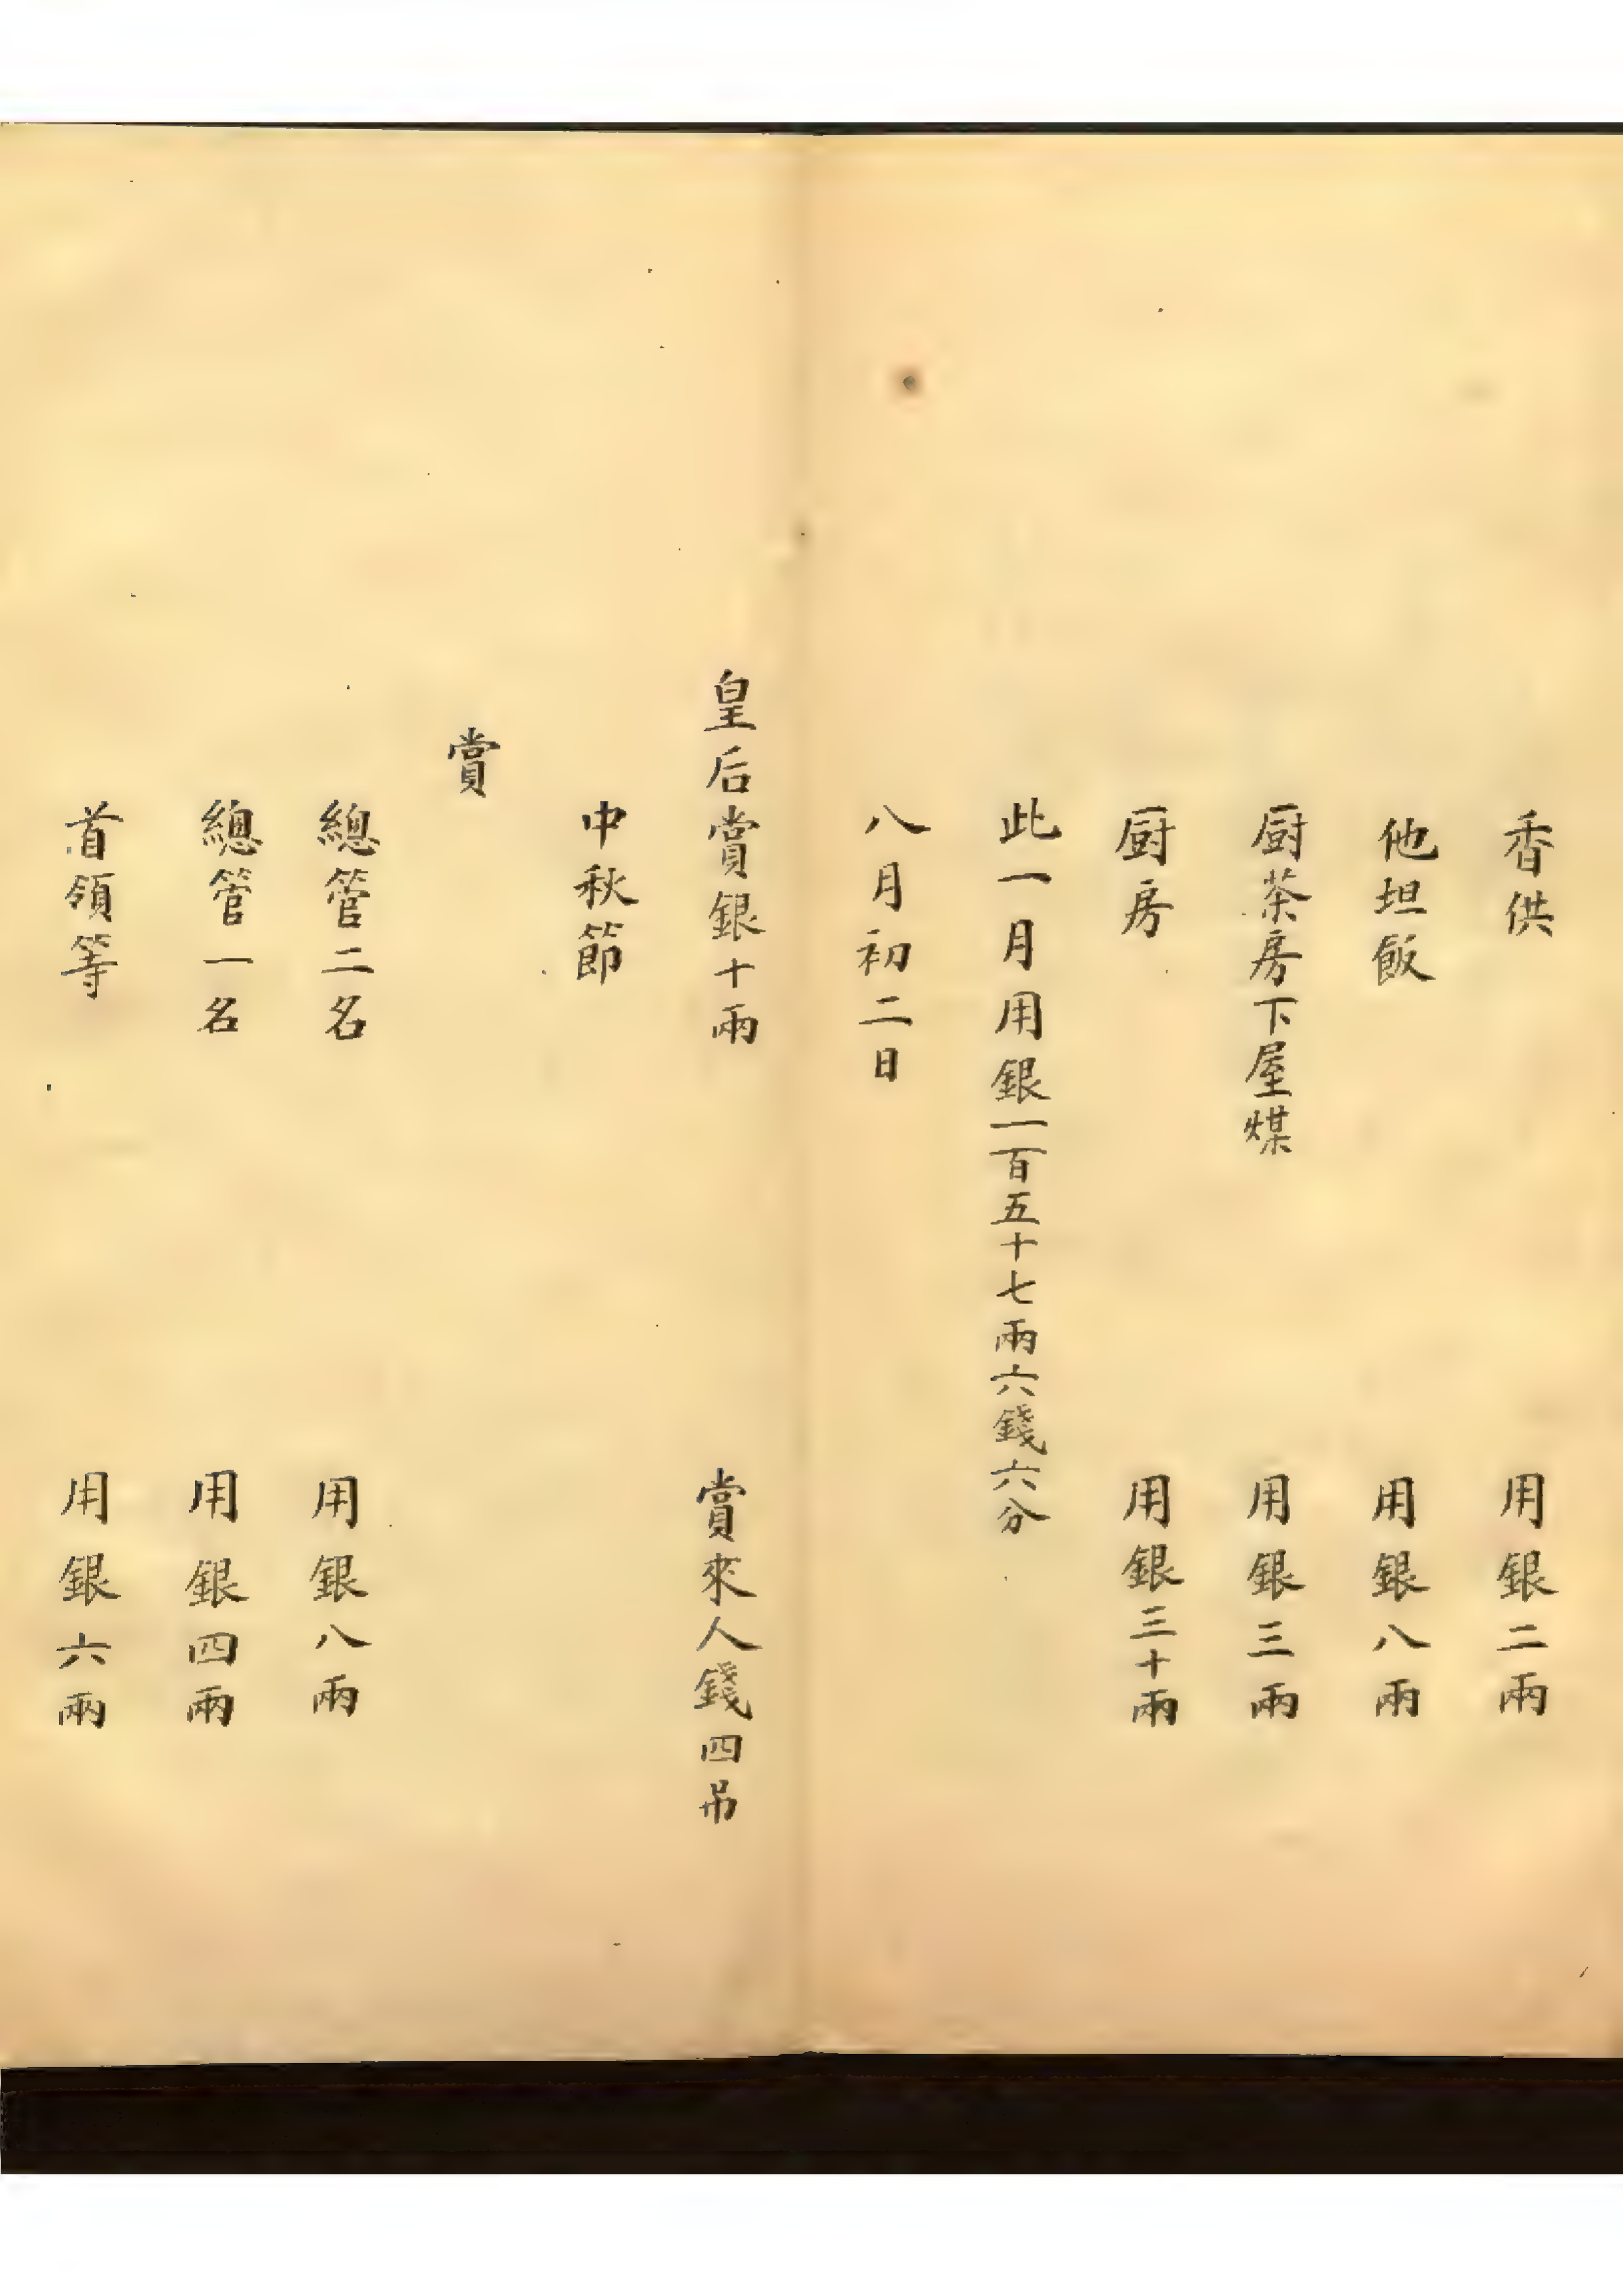 香供 用銀二兩
他坦飯 用銀八兩
厨茶房下屋煤 用銀三兩
厨房 用銀三十兩
此一月用銀一百五十七兩六錢六分
八月初二日
皇后賞銀十兩 賞來人錢四吊
中秋節
賞
總管二名 用銀八兩
總管一名 用銀四兩
首領等 用銀六兩